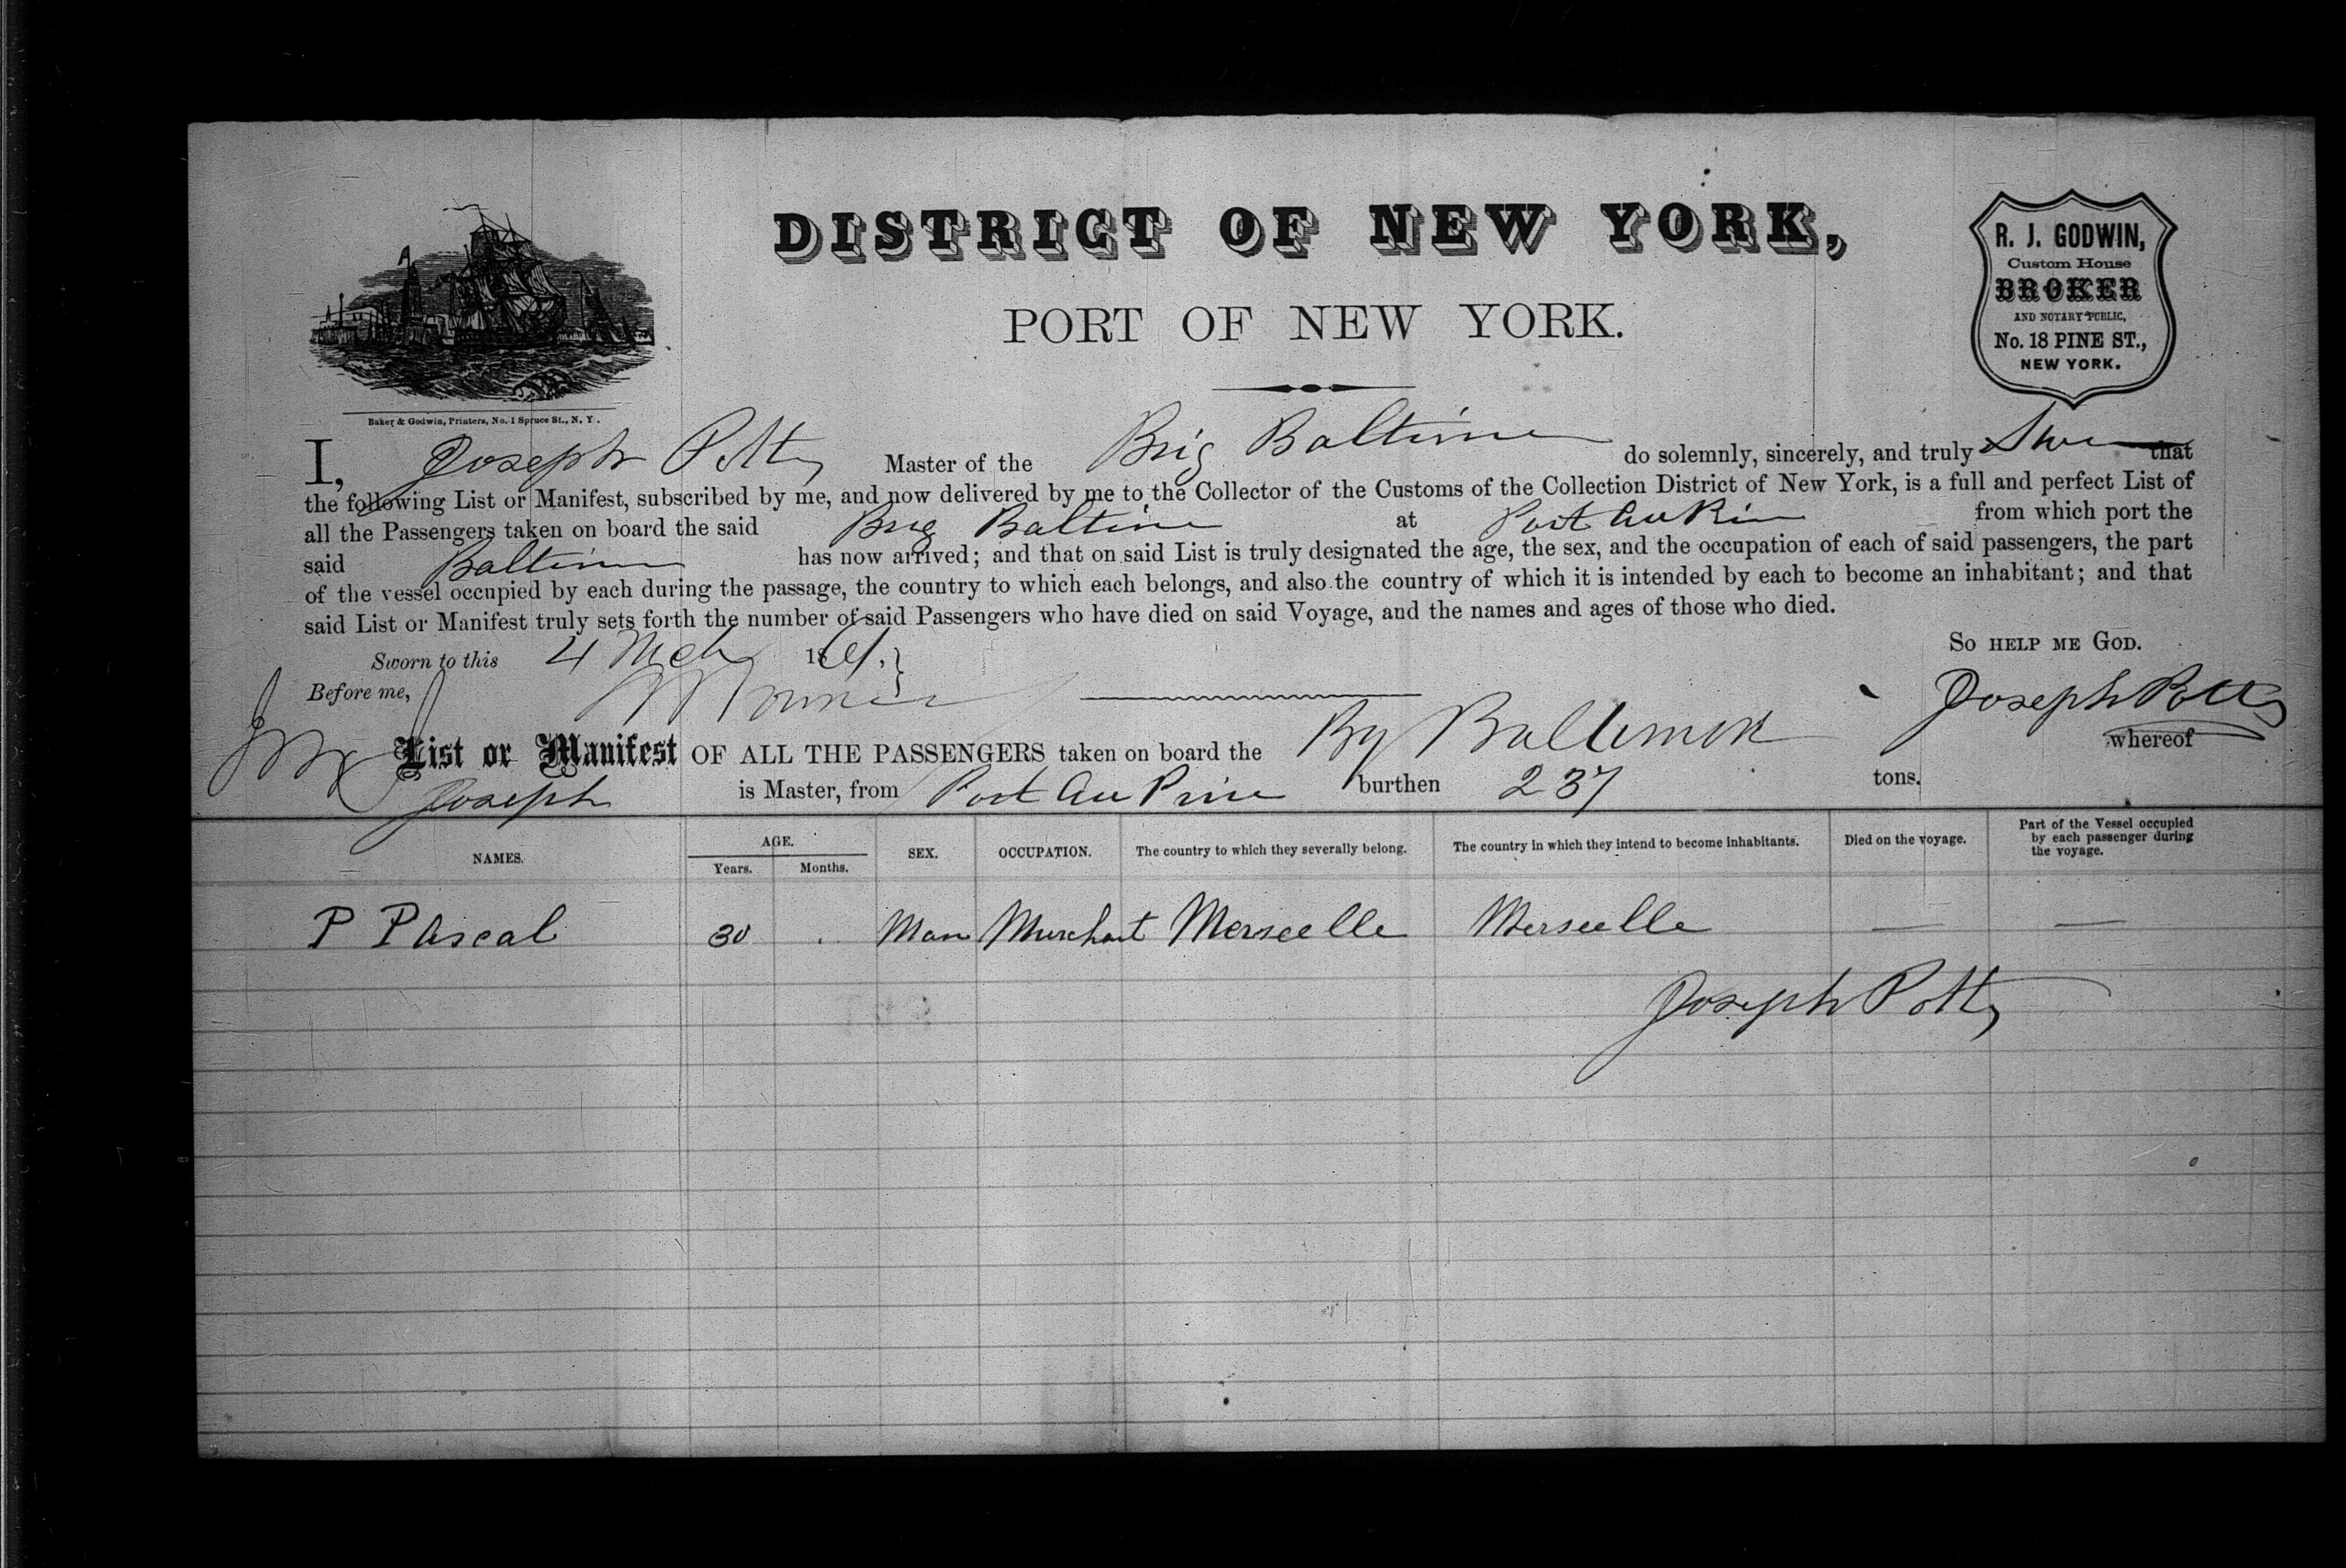 DISTRICT OF NEW YORK,
PORT OF NEW YORK.
R. J. GODWIN,
Custom House
BROKER
AND NOTARY PUBLIC,
No. 18 PINE ST.,
NEW YORK.
Baker & Godwin, Printers, No. 1 Spruce St., N. Y.
I, Joseph Potts Master of the Brig Baltimore do solemnly, sincerely, and truly that
the following List or Manifest, subscribed by me, and now delivered by me to the Collector of the Customs of the Collection District of New York, is a full and perfect List of
all the Passengers taken on board the said Brig Baltimore at Port au Prin from which port the
said Baltimore has now arrived; and that on said List is truly designated the age, the sex, and the occupation of each of said passengers, the part
of the vessel occupied by each during the passage, the country to which each belongs, and also the country of which it is intended by each to become an inhabitant; and that
said List or Manifest truly sets forth the number of said Passengers who have died on said Voyage, and the names and ages of those who died.
So HELP ME GOD.
Sworn to this 4 Mch 1861.
Before me, Joseph Potts
List or Manifest OF ALL THE PASSENGERS taken on board the Brig Baltimore whereof
Joseph is Master, from Port Au Prin burthen 237 tons.
NAMES. AGE. Years. Months. SEX. OCCUPATION. The country to which they severally belong. The country in which they intend to become inhabitants. Died on the voyage. Part of the Vessel occupied by each passenger during the voyage.
P Pascal 30 .. Man Murchant Merseelle Merseelle — —
Joseph Potts